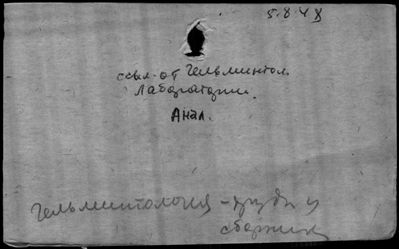 5.8 4
ссыл. от Гельминтол.
Лаборатории.
Анал.
Гельминтология - труды и
сборник